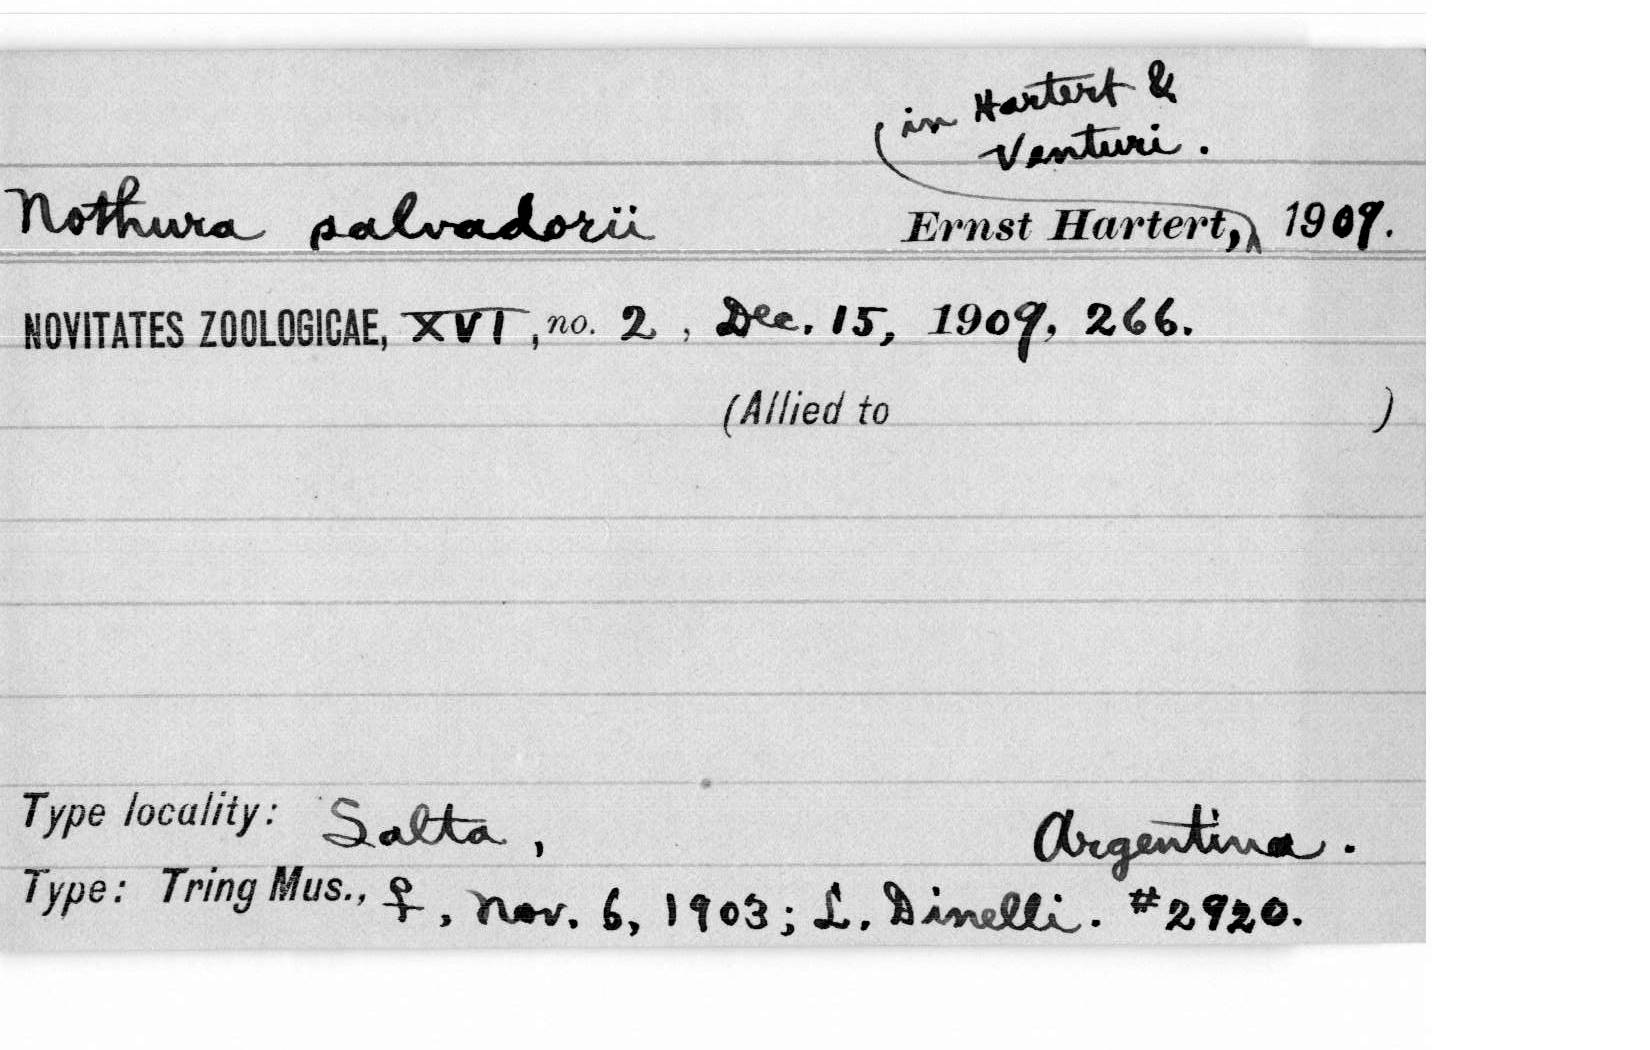 in Hartert &
Venturi.
Nothura salvadorii Ernst Hartert, 1909.
NOVITATES ZOOLOGICAE, XVI, no. 2, Dec. 15, 1909, 266.
(Allied to )
Type locality: Salta, Argentina.
Type: Tring Mus., ♀, Nov. 6, 1903; L. Dinelli. #2920.